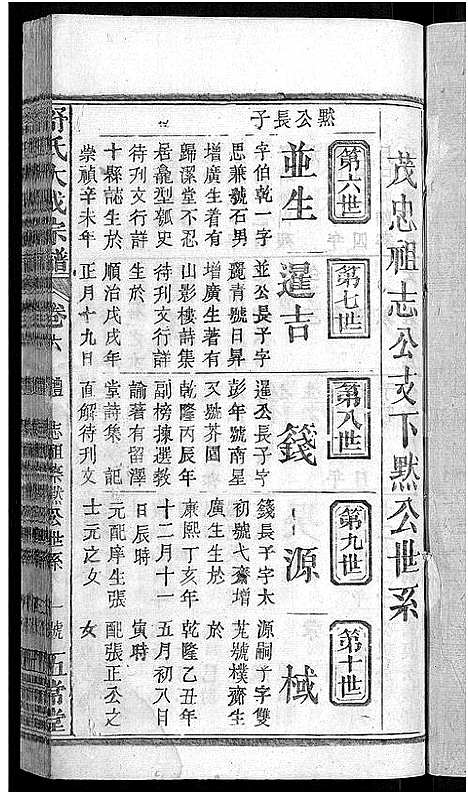 茂忠祖志公支下默公世系
第六世
默公長子
並生
字伯乾一字
思兼號石男
增廣生着有
歸潔堂不忍
居龕型瓠史
待刋文行詳
十縣誌生於
崇禎辛未年
第七世
暹吉
並公長子字
麗青號日昇
增廣生著有
山影樓詩集
待刋文行詳
生於
順治戊戌年
正月十九日
第八世
籛
暹公長子字
彭年號南星
又號芥園
乾隆丙辰年
副榜揀選敎
諭著有留澤
堂詩集 記
直解待刋文
第九世
源
籛長子字太
初號弋齋增
廣生生於
康熙丁亥年
十二月十一
日辰時
元配庠生張
士元之女
第十世
棫
源嗣子字雙
芄號樸齋生
於
乾隆乙丑年
五月初八日
寅時
配張正公之
女
舒氏大成宗譜 卷六 禮 志祖崇默公世系 一號 五常堂